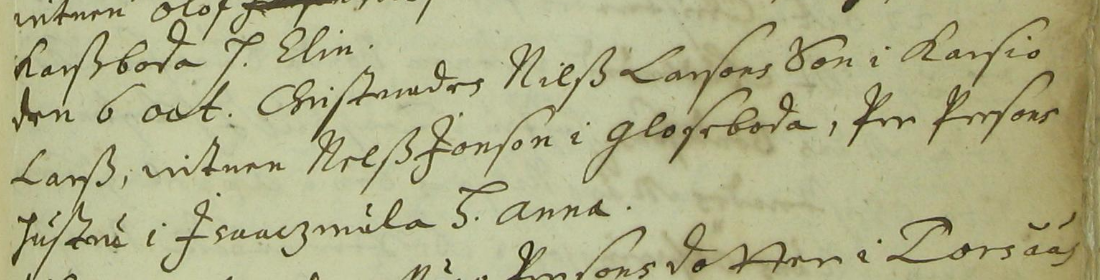 witnen Olof
Karßboda H. Elin.
den 6 oct. Christnades Nilß Larsons Son i Karsio
Larß, witnen Nelß Jonson i gloseboda, Per Persons
hustru i Isaaczmåla H. Anna.
Persons dotter i Torsåås